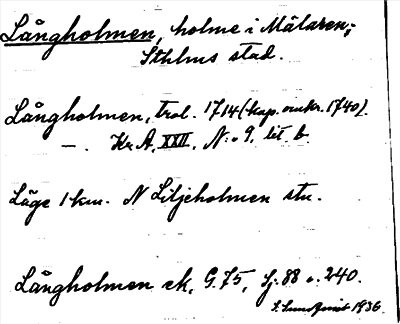 Långholmen, holme i Mälaren;
Sthlms stad.
Långholmen, trol. 1714 (kop. omkr. 1740).
—. Kr. A. XXII, N:o 9, lit. b.
Läge 1 km. N Liljeholmen stn.
Långholmen ek. G. 75, Sj. 88 o. 240.
S. Sundqvist 1936.